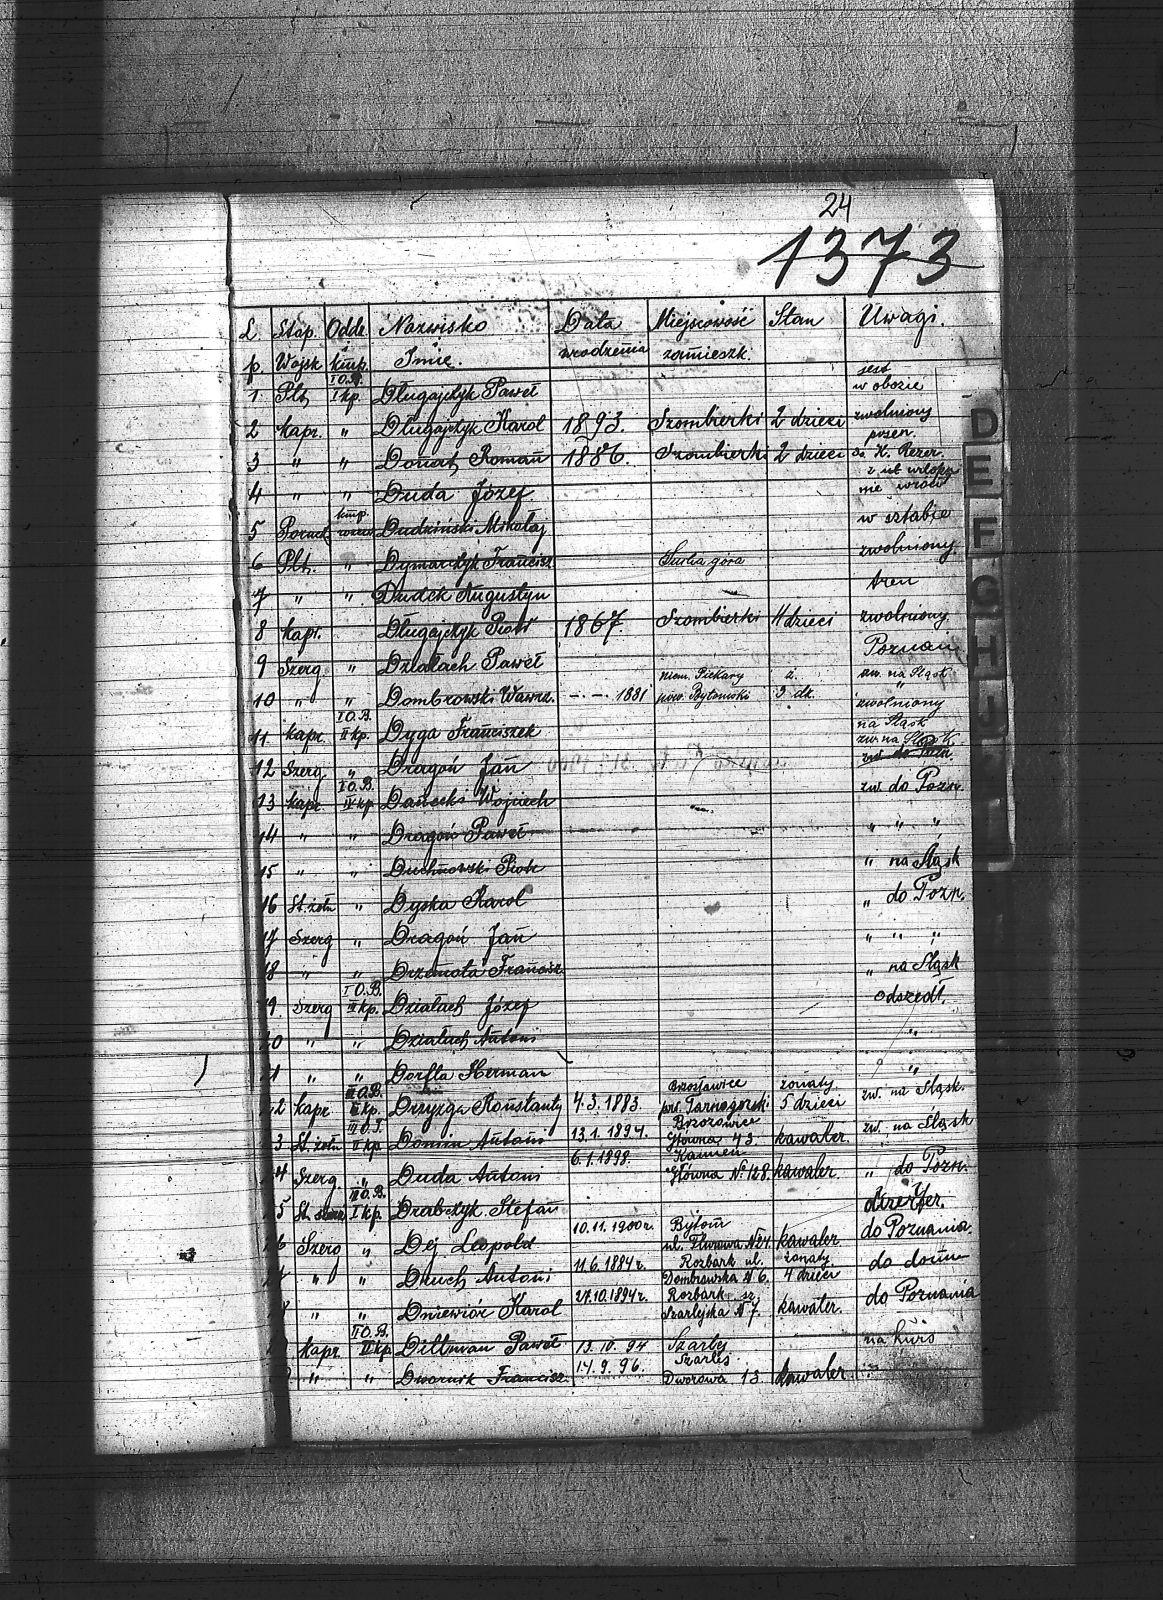 24
1373
L. Stop. Oddz. Nazwisko Data Miejscowość Stan Uwagi.
p. Wojsk i kmp. Imię. urodzenia zamieszk.
1 Plt. I O.B. I kp. Długajczyk Paweł jest w obozie
2 Kapr. " Długajczyk Karol 1893. Szombierki 2 dzieci zwolniony
3 " " Donat Roman 1886. Szombierki 2 dzieci
4 " " Duda Józef nie wrócił
5 kmp. Dudziński Mikołaj w sztabie
6 Plt. " Dymarczyk Francisz Sucha góra zwolniony.
7 " " Dudek Augustyn tren
8 Kapr. Długajczyk Piotr 1867. Szombierki 4 dzieci zwolniony.
9 Szerg " Działach Paweł Poznań
10 " " Dombrowski Wawrz. — · — 1881 niem. Piekary pow. Bytomski ż. 3 dz. zw. na Śląsk
11 Kapr. I O.B. II kp. Dyga Franciszek zwolniony na Śląsk
12 Szerg " Dragoń Jan zw. na Śląsk
13 Kapr. I O.B. IV kp. Danecki Wojciech zw. do Pozn.
14 " " Dragoń Paweł " " "
15 " " Duchnowski Piotr " na Śląsk
16 St. żołn " Dyska Karol " do Pozn.
17 Szerg " Dragoń Jan " " "
18 " " Drzemota Francisz. " na Śląsk
9 Szerg I O.B. III kp. Działach Józef odszedł.
20 " " Działach Antoni "
21 " " Dorfla Herman "
2 Kapr III O.B. kp. Dryzga Konstanty 4.3.1883. Brzosławice pow. Tarnogorski. żonaty 5 dzieci zw. na Śląsk.
3 St. żołn II kp. Domin Antoni 13.1.1894. Brzozowice Główna 43. kawaler. zw. na Śląsk
4 Szerg. " Duda Antoni 6.1.1898. Kamień Główna № 128. kawaler. " do Pozn.
5 St. III O.B. I kp. Drabczyk Stefan dezerter.
6 Szerg " Dej Leopold 10.11.1900 r. Bytom ul. Flurowa № 24. kawaler do Poznania.
" " Duch Antoni 11.6.1884 r. Rozbark ul. Dombrowska № 6. żonaty 4 dzieci do domu
" " Dniewiór Karol 27.10.1894 r. Rozbark sz. Szarlejska № 7. kawaler. do Poznania
Kapr II O.B. kp Dittman Paweł 13.10.94 Szarlej na kurs
" " Dwornik Francisz. 14.9.96. Szarlej. Dworowa 13 kawaler. "
D
E
F
G
H